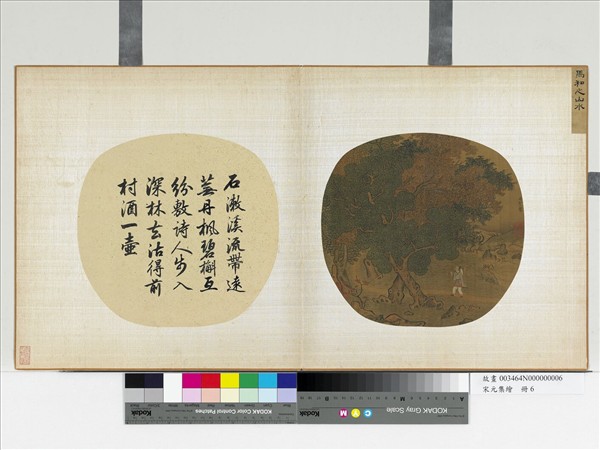 馬和之山水
石激溪流帶遠
蕪丹楓碧槲互
紛敷詩人步入
深林去沽得前
村酒一壺
KODAK Color Control Patches
KODAK Gray Scale
A
M
C Y M
B
故畫 003464N000000006
宋元集繪 冊 6